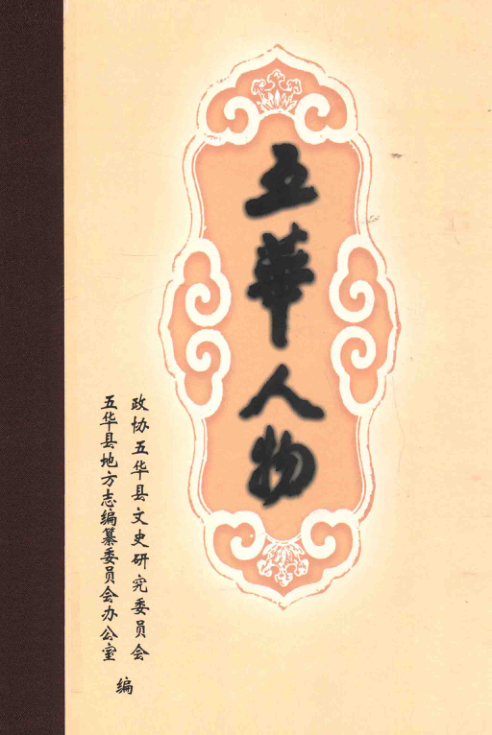 五華人物
政协五华县文史研究委员会
五华县地方志编纂委员会办公室
编